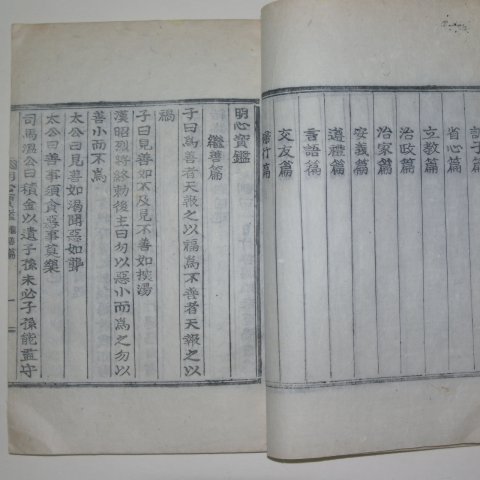 訓子篇
省心篇
立教篇
治政篇
治家篇
安義篇
遵禮篇
言語篇
交友篇
婦行篇
明心寶鑑
繼善篇
子曰爲善者天報之以福爲不善者天報之以
禍
子曰見善如不及見不善如探湯
漢昭烈將終勅後主曰勿以惡小而爲之勿以
善小而不爲
太公曰見善如渴聞惡如聾
太公曰善事須貪惡事莫樂
司馬溫公曰積金以遺子孫未必子孫能盡守
明心寶鑑 繼善篇 一